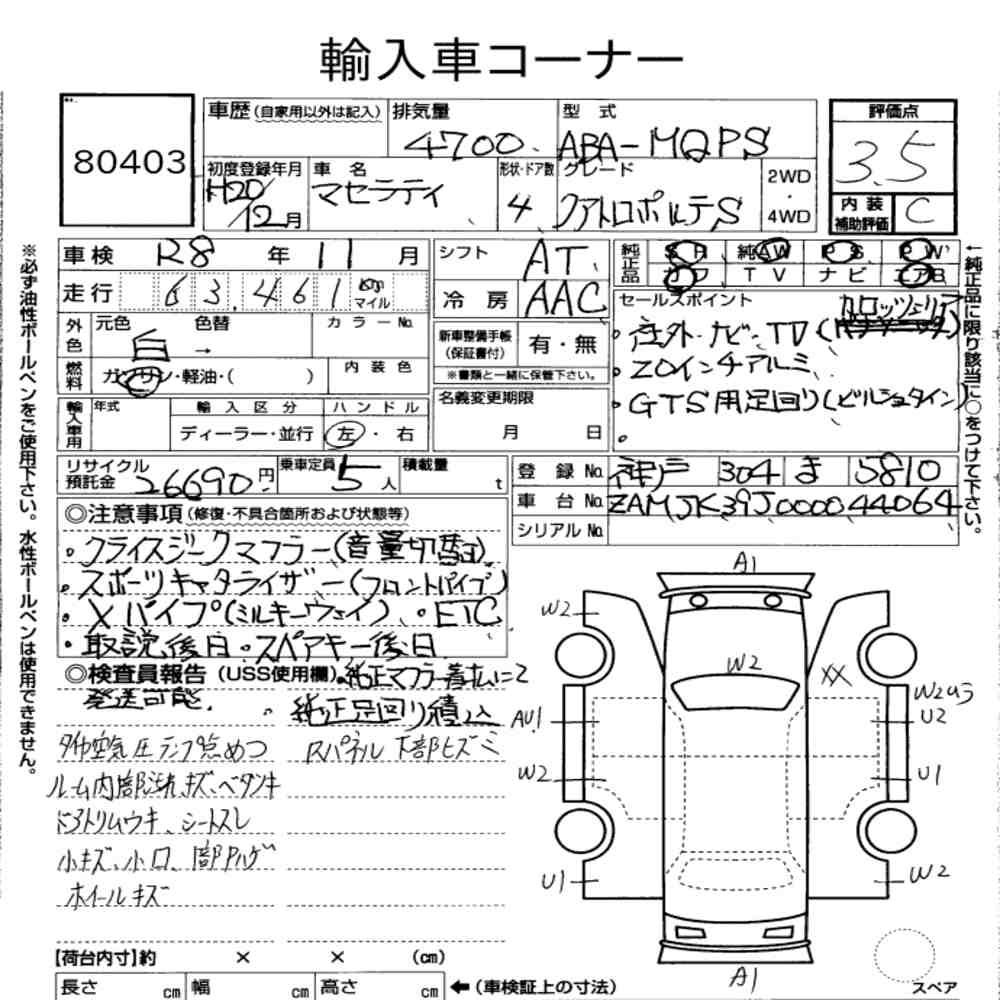 輸入車コーナー
80403
車歴(自家用以外は記入) 排気量 4700 型式 ABA-MQPS
初度登録年月 H20/12月 車名 マセラティ 形状・ドア数 4 グレード クアトロポルテS 2WD・4WD
評価点 3.5
内装補助評価 C
※必ず油性ボールペンをご使用下さい。水性ボールペンは使用できません。
車検 R8年 11月
走行 63,461 km マイル
シフト AT
冷房 AAC
外色 元色 白 色替 → カラーNo.
燃料 ガソリン・軽油・( ) 内装色
新車整備手帳(保証書付) 有・無
※書類と一緒に保管下さい。
輸入車用 年式 輸入区分 ディーラー・並行 ハンドル 左・右
名義変更期限 月 日
純正品 SR 純AW PS PW
カワ TV ナビ エアB
←純正品に限り該当に○をつけて下さい。
セールスポイント
・社外・ナビ・TV(カロッツェリア)
・20インチアルミ
・GTS用足回り(ビルシュタイン)
・
リサイクル預託金 26690円 乗車定員 5人 積載量 t
登録No. 神戸 304 ま 5810
車台No. ZAMJK39J000044064
シリアルNo.
◎注意事項(修復・不具合箇所および状態等)
・クライスジークマフラー(音量切替可)
・スポーツキャタライザー(フロントパイプ)
・Xパイプ(ミルキーウェイ) ・ETC
・取説後日・スペアキー後日
◎検査員報告(USS使用欄)・純正マフラー着払いにて
発送可能。 。純正足回り積込
タイヤ空気圧ランプ点めつ Rパネル下部ヒズミ
ルーム内部汚れ、キズ、ベタツキ
ドアトリムウキ、シートスレ
小キズ、小凹、
ホイールキズ
A1
W2
W2
XX
W2ゥラ
AU1
U2
W2
U1
U1
W2
A1
スペア
【荷台内寸】約 × × (cm)
長さ cm 幅 cm 高さ cm ←(車検証上の寸法)